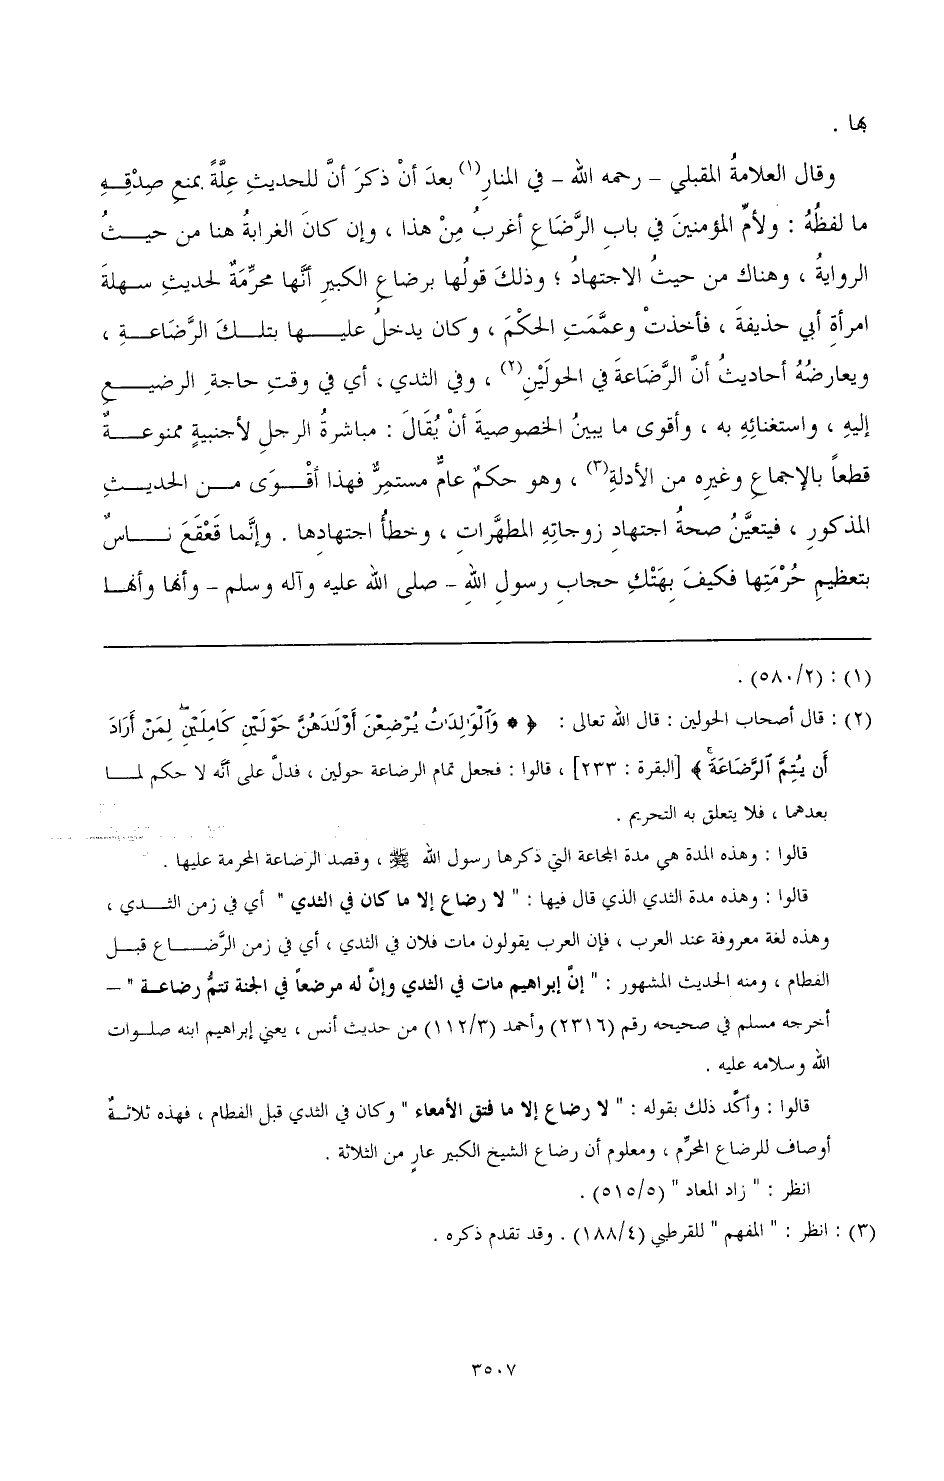 بها .
وقال العلامةُ المقبلي – رحمه الله – في المنارِ(١) بعدَ أنْ ذكرَ أنَّ للحديثِ عِلَّةً يمنع صِدْقِهِ
ما لفظُهُ : ولأمِّ المؤمنينَ في بابِ الرَّضَاعِ أغربُ مِنْ هذا ، وإن كانَ الغرابةُ هنا من حيثُ
الروايةُ ، وهناك من حيثُ الاجتهادُ ؛ وذلكَ قولُها برضاعِ الكبيرِ أنَّها محرِّمَةٌ لحديثِ سهلةَ
امرأةِ أبي حذيفةَ ، فأخذتْ وعمَّمَتِ الحكْمَ ، وكان يدخلُ عليها بتلكَ الرَّضَاعةِ ،
ويعارضُهُ أحاديثُ أنَّ الرَّضَاعةَ في الحولَيْنِ(٢) ، وفي الثدي ، أي في وقتِ حاجةِ الرضيعِ
إليهِ ، واستغنائِهِ به ، وأقوى ما يبينُ الخصوصيةَ أنْ يُقَالَ : مباشرةُ الرجلِ لأجنبيةٍ ممنوعةٌ
قطعاً بالإجماعِ وغيره من الأدلةِ(٣) ، وهو حكمٌ عامٌّ مستمرٌّ فهذا أقْوَى من الحديثِ
المذكورِ ، فيتعيَّنُ صحةُ اجتهادِ زوجاتِهِ المطهَّراتِ ، وخطأُ اجتهادِها . وإنَّما قَعْقَعَ ناسٌ
بتعظيمِ حُرْمَتِها فكيفَ بِهَتْكِ حجابِ رسولِ اللهِ – صلى الله عليه وآله وسلم – وأنها وأنها
(١) : (٢/٥٨٠) .
(٢) : قال أصحاب الحولين : قال الله تعالى : ﴿ * وَٱلْوَٰلِدَٰتُ يُرْضِعْنَ أَوْلَٰدَهُنَّ حَوْلَيْنِ كَامِلَيْنِ ۖ لِمَنْ أَرَادَ
أَن يُتِمَّ ٱلرَّضَاعَةَ ۚ ﴾ [البقرة : ٢٣٣] ، قالوا : فجعل تمام الرضاعة حولين ، فدلَّ على أنَّه لا حكم لما
بعدهما ، فلا يتعلق به التحريم .
قالوا : وهذه المدة هي مدة المجاعة التي ذكرها رسول الله ﷺ ، وقصد الرضاعة المحرمة عليها .
قالوا : وهذه مدة الثدي الذي قال فيها : " لا رضاع إلا ما كان في الثدي " أي في زمن الثدي ،
وهذه لغة معروفة عند العرب ، فإن العرب يقولون مات فلان في الثدي ، أي في زمن الرَّضاع قبل
الفطام ، ومنه الحديث المشهور : " إنَّ إبراهيم مات في الثدي وإنَّ له مرضعاً في الجنة تتمُّ رضاعة " –
أخرجه مسلم في صحيحه رقم (٢٣١٦) وأحمد (٣/١١٢) من حديث أنس ، يعني إبراهيم ابنه صلوات
الله وسلامه عليه .
قالوا : وأكَّد ذلك بقوله : " لا رضاع إلا ما فتق الأمعاء " وكان في الثدي قبل الفطام ، فهذه ثلاثةٌ
أوصاف للرضاع المحرِّم ، ومعلوم أن رضاع الشيخ الكبير عارٍ من الثلاثة .
انظر : " زاد المعاد " (٥/٥١٥) .
(٣) : انظر : " المفهم " للقرطبي (٤/١٨٨) . وقد تقدم ذكره .
٣٥٠٧